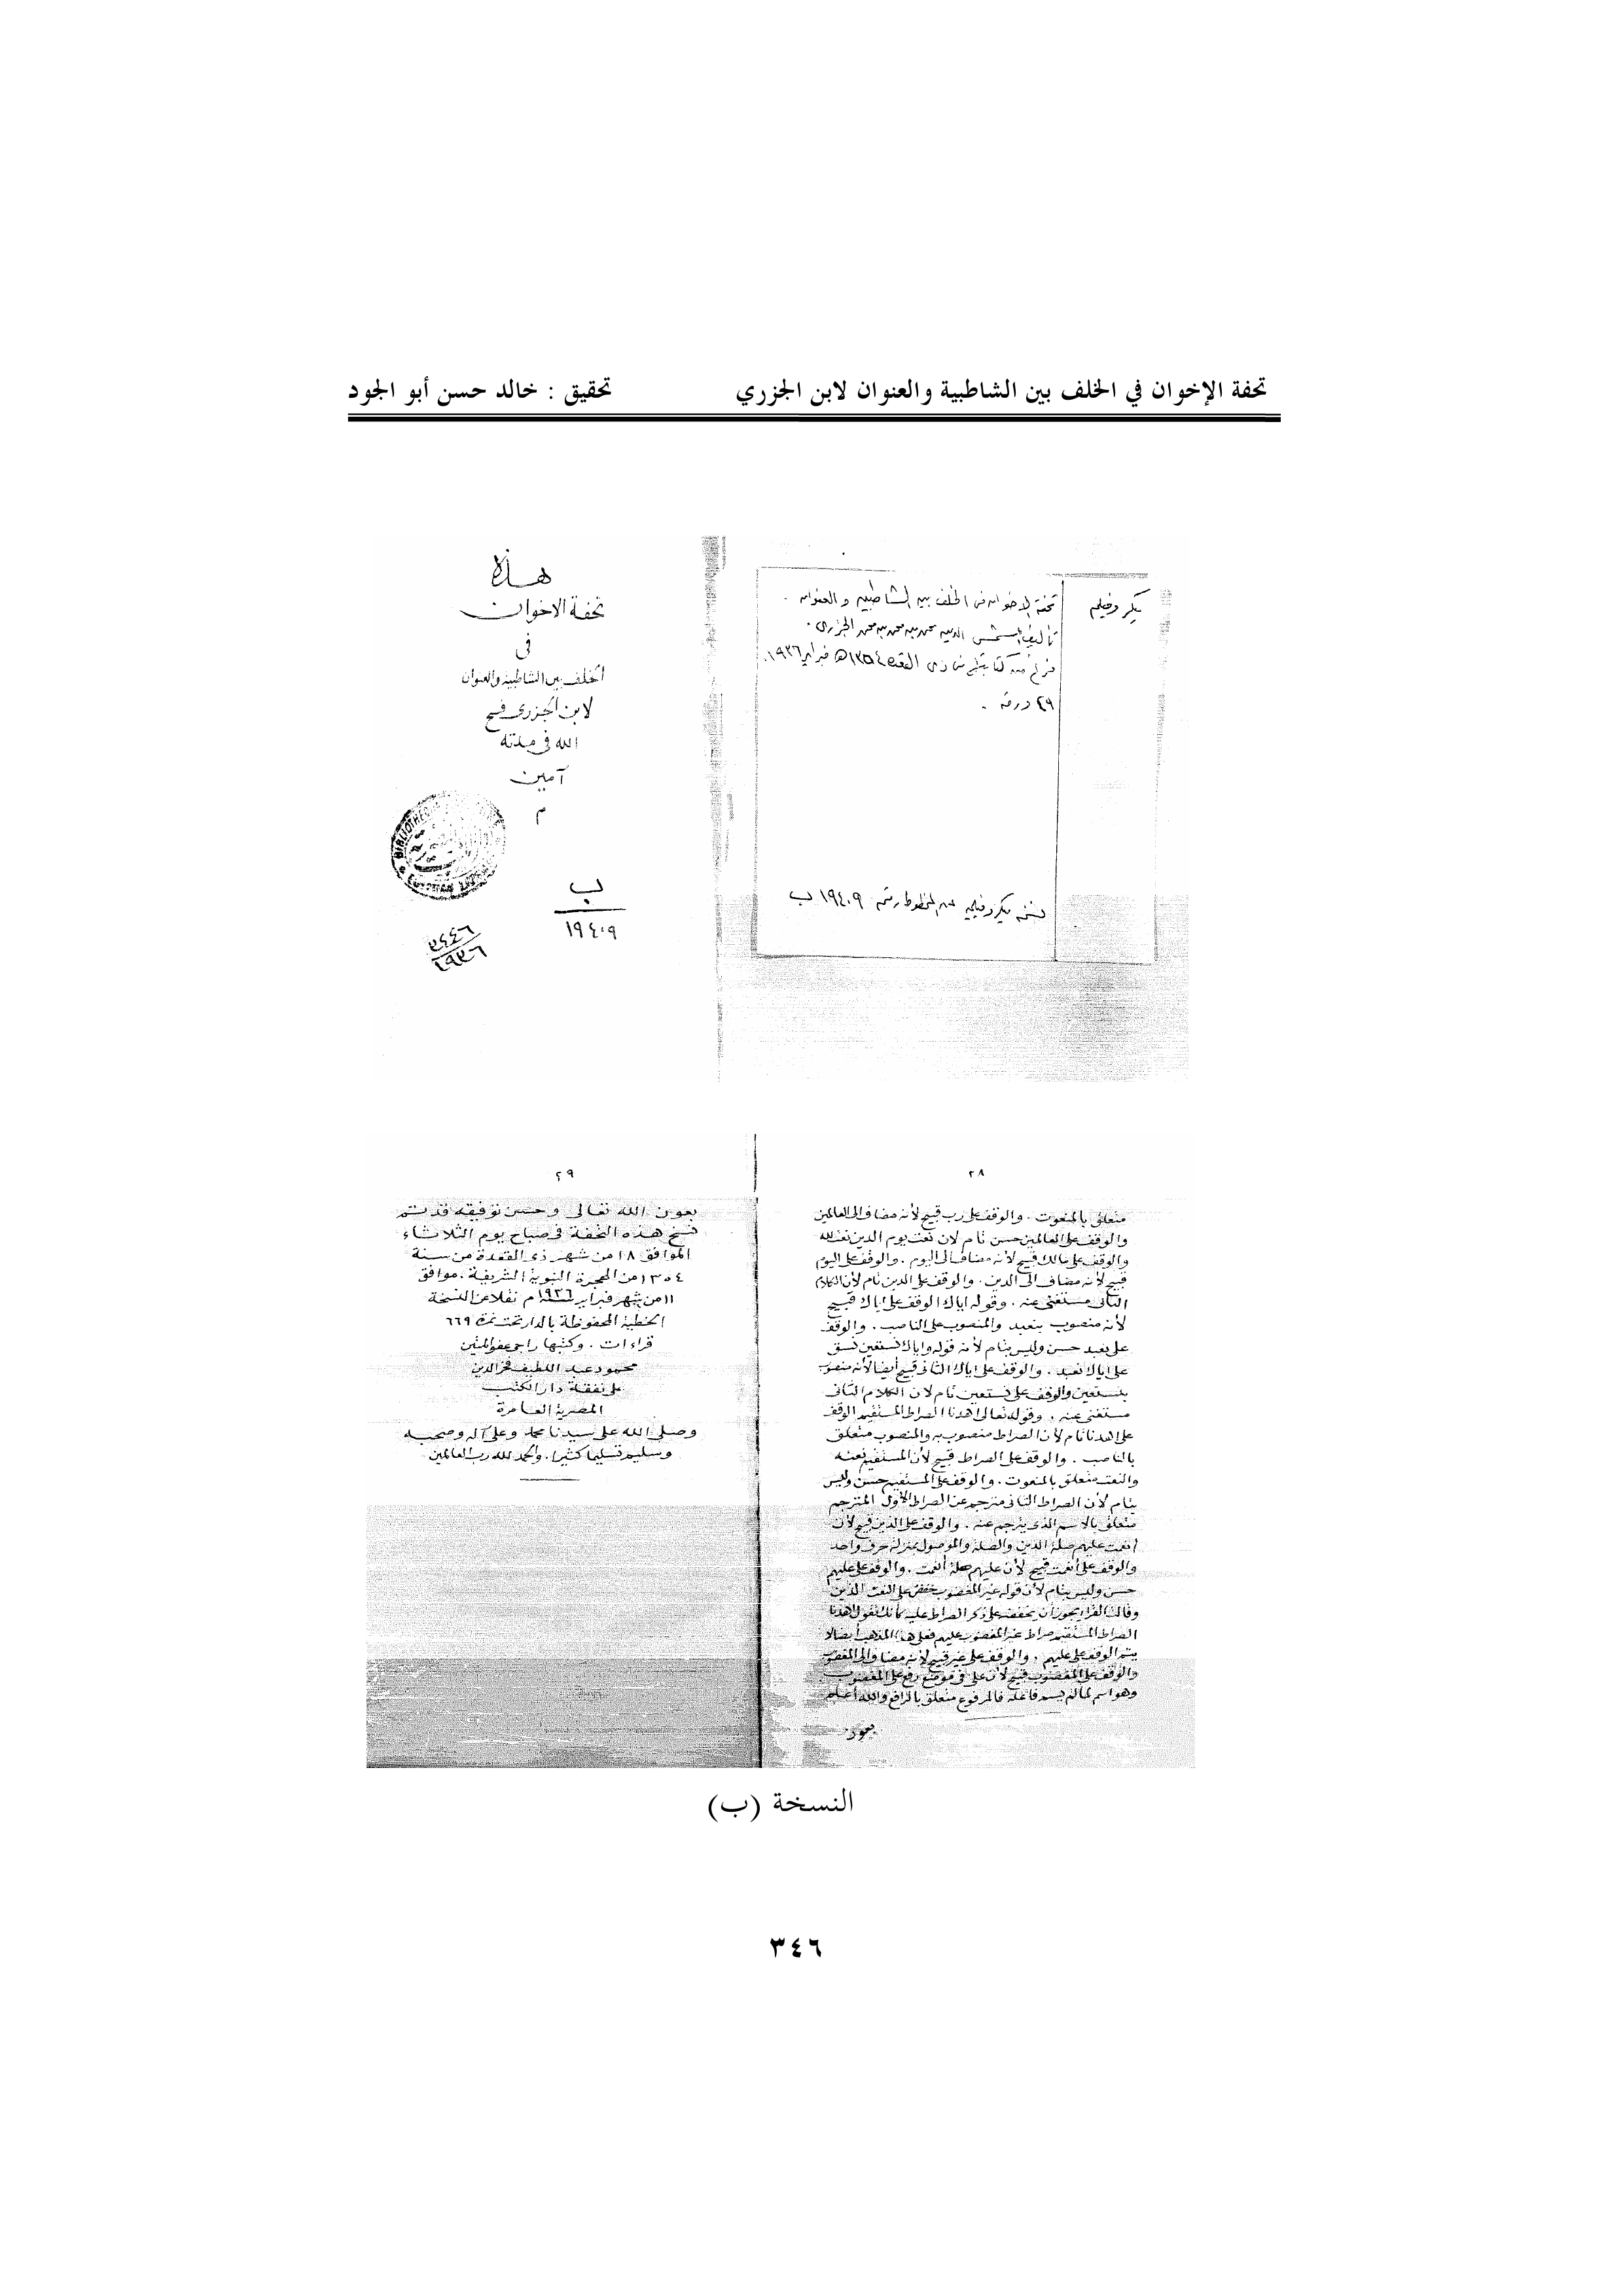 تحفة الإخوان في الخلف بين الشاطبية والعنوان لابن الجزري تحقيق : خالد حسن أبو الجود
ميكروفيلم
تحفة الإخوان فى الخلف بين الشاطبية والعنوان .
تأليف شمس الدين محمد بن محمد بن محمد الجزرى .
فرغ منه كتابة فى ذى القعدة ١٣٥٤هـ فبراير ١٩٣٦.
٢٩ ورقة .
نسخة ميكروفيلمية عن المخطوط رقم ١٩٤٠٩ ب
هذه
تحفة الاخوان
فى
الخلف بين الشاطبية والعنوان
لابن الجزرى فسح
الله فى مدته
آمين
م
ب
١٩٤٠٩
٢٤٤٦
١٩٣٦
٢٨
متعلق بالمنعوت . والوقف على رب قبيح لأنه مضاف الى العالمين
والوقف على العالمين حسن تام لان نعت يوم الدين نعت لله
والوقف على مالك قبيح لأنه مضاف الى اليوم . والوقف على اليوم
قبيح لأنه مضاف الى الدين . والوقف على الدين تام لأن الكلام
الثانى مستغنى عنه . وقوله اياك الوقف على اياك قبيح
لأنه منصوب بنعبد والمنصوب على الناصب . والوقف
على نعبد حسن وليس بتام لأنه قوله واياك نستعين نسق
على اياك نعبد . والوقف على اياك الثانى قبيح أيضا لأنه منصوب
بنستعين والوقف على نستعين تام لان الكلام الثانى
مستغنى عنه . وقوله تعالى اهدنا الصراط المستقيم الوقف
على اهدنا تام لأن الصراط منصوب به والمنصوب متعلق
بالناصب . والوقف على الصراط قبيح لأن المستقيم نعته
والنعت متعلق بالمنعوت . والوقف على المستقيم حسن وليس
بتام لأن الصراط الثانى مترجم عن الصراط الأول المترجم
متعلق بالاسم الذى يترجم عنه . والوقف على الذين قبيح لأن
أنعمت عليهم صلة الذين والصلة والموصول بمنزلة حرف واحد
والوقف على أنعمت قبيح لأن عليهم صلة أنعمت . والوقف على عليهم
حسن وليس بتام لأن قوله غير المغضوب خفض على النعت الذين
وقال الفراء يجوز أن يخفضه على ذكر الصراط عليه كأنك تقول اهدنا
الصراط المستقيم صراط غير المغضوب عليهم فعلى هذا المذهب أيضا لا
يتم الوقف على عليهم . والوقف على غير قبيح لأنه مضاف الى المغضوب
والوقف على المغضوب قبيح لأن على فى موضع رفع على المغضوب
وهو اسم لما لم يسم فاعله فالمرفوع متعلق بالرافع والله أعلم
بعون
٢٩
بعون الله تعالى وحسن توفيقه قد تم
نسخ هذه التحفة فى صباح يوم الثلاثاء
الموافق ١٨ من شهر ذى القعدة من سنة
١٣٥٤ من الهجرة النبوية الشريفة . موافق
١١ من شهر فبراير سنة ١٩٣٦ م نقلا عن النسخة
الخطية المحفوظة بالدار تحت نمرة ٦٦٩
قراءات . وكتبها راجى عفو المنين
محمود عبد اللطيف فخر الدين
على نفقة دار الكتب
المصرية العامرة
وصلى الله على سيدنا محمد وعلى آله وصحبه
وسليم تسليما كثيرا . والحمد لله رب العالمين
النسخة (ب)
٣٤٦